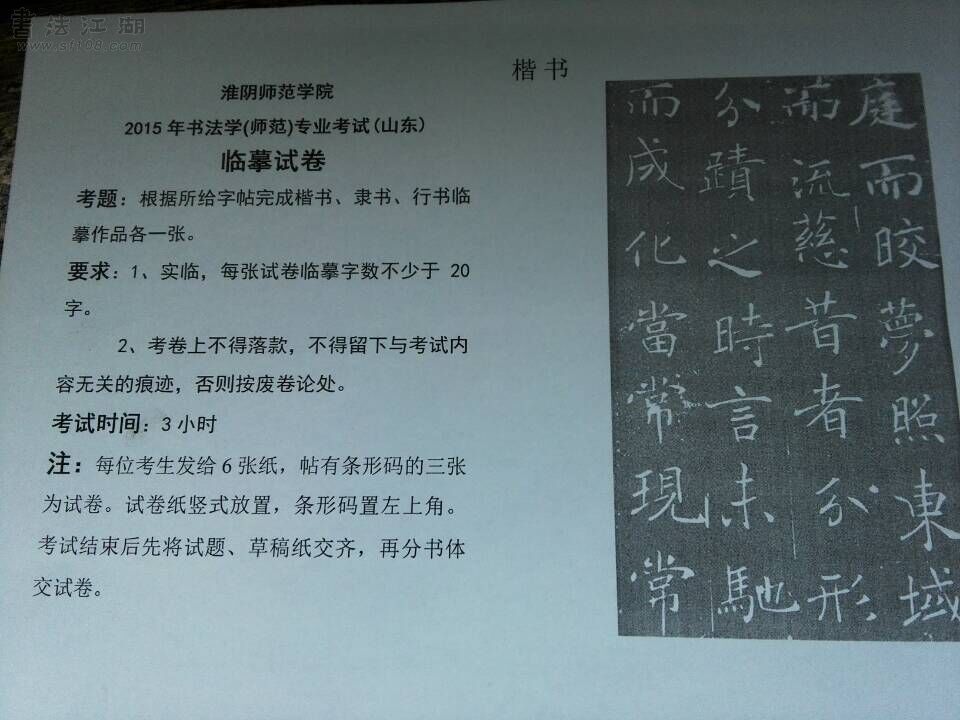 書法江湖
www.sf108.com
淮阴师范学院
2015年书法学(师范)专业考试(山东)
临摹试卷
考题：根据所给字帖完成楷书、隶书、行书临
摹作品各一张。
要求：1、实临，每张试卷临摹字数不少于 20
字。
2、考卷上不得落款，不得留下与考试内
容无关的痕迹，否则按废卷论处。
考试时间：3小时
注：每位考生发给6张纸，帖有条形码的三张
为试卷。试卷纸竖式放置，条形码置左上角。
考试结束后先将试题、草稿纸交齐，再分书体
交试卷。
楷书
庭而皎夢照東域
而流慈昔者分形
分蹟之時言未馳
而成化當常現常